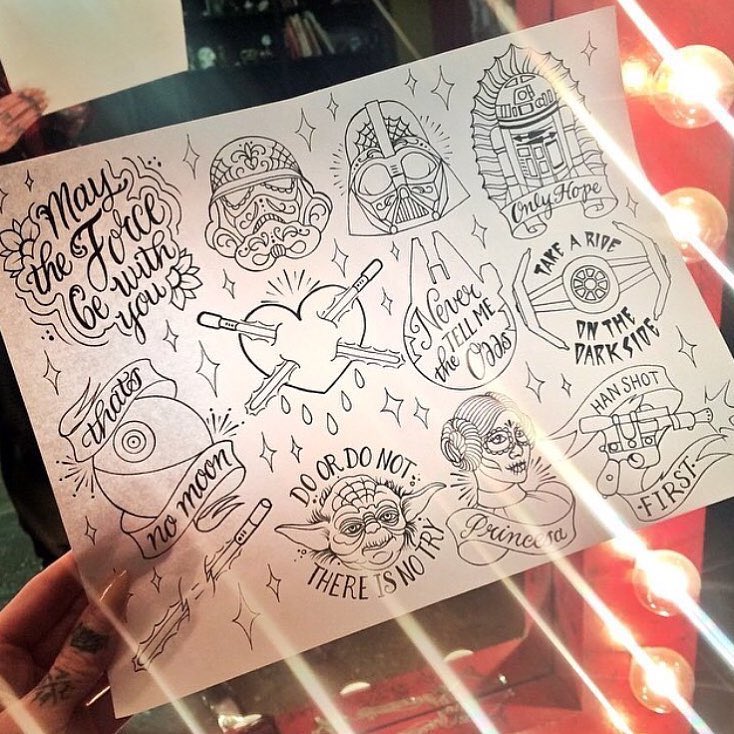 May
the Force
be with
you
Only Hope
Never
TELL ME
the Odds
TAKE A RIDE
ON THE
DARK SIDE
thats
no moon
DO OR DO NOT
THERE IS NO TRY
Princesa
HAN SHOT
FIRST